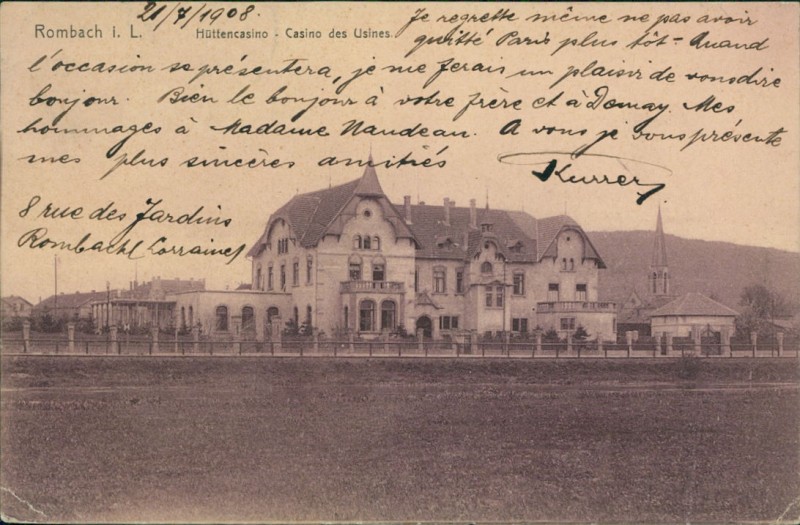 21/7/1908.
Rombach i. L. Hüttencasino - Casino des Usines.
Je regrette même ne pas avoir
quitté Paris plus tôt - Quand
l'occasion se présentera, je me ferais un plaisir de vous dire
bonjour. Bien le bonjour à votre frère et à Demay. Mes
hommages à Madame Naudeau. A vous je vous présente
mes plus sincères amitiés
Kurrer
8 rue des Jardins
Rombach (Lorraine)